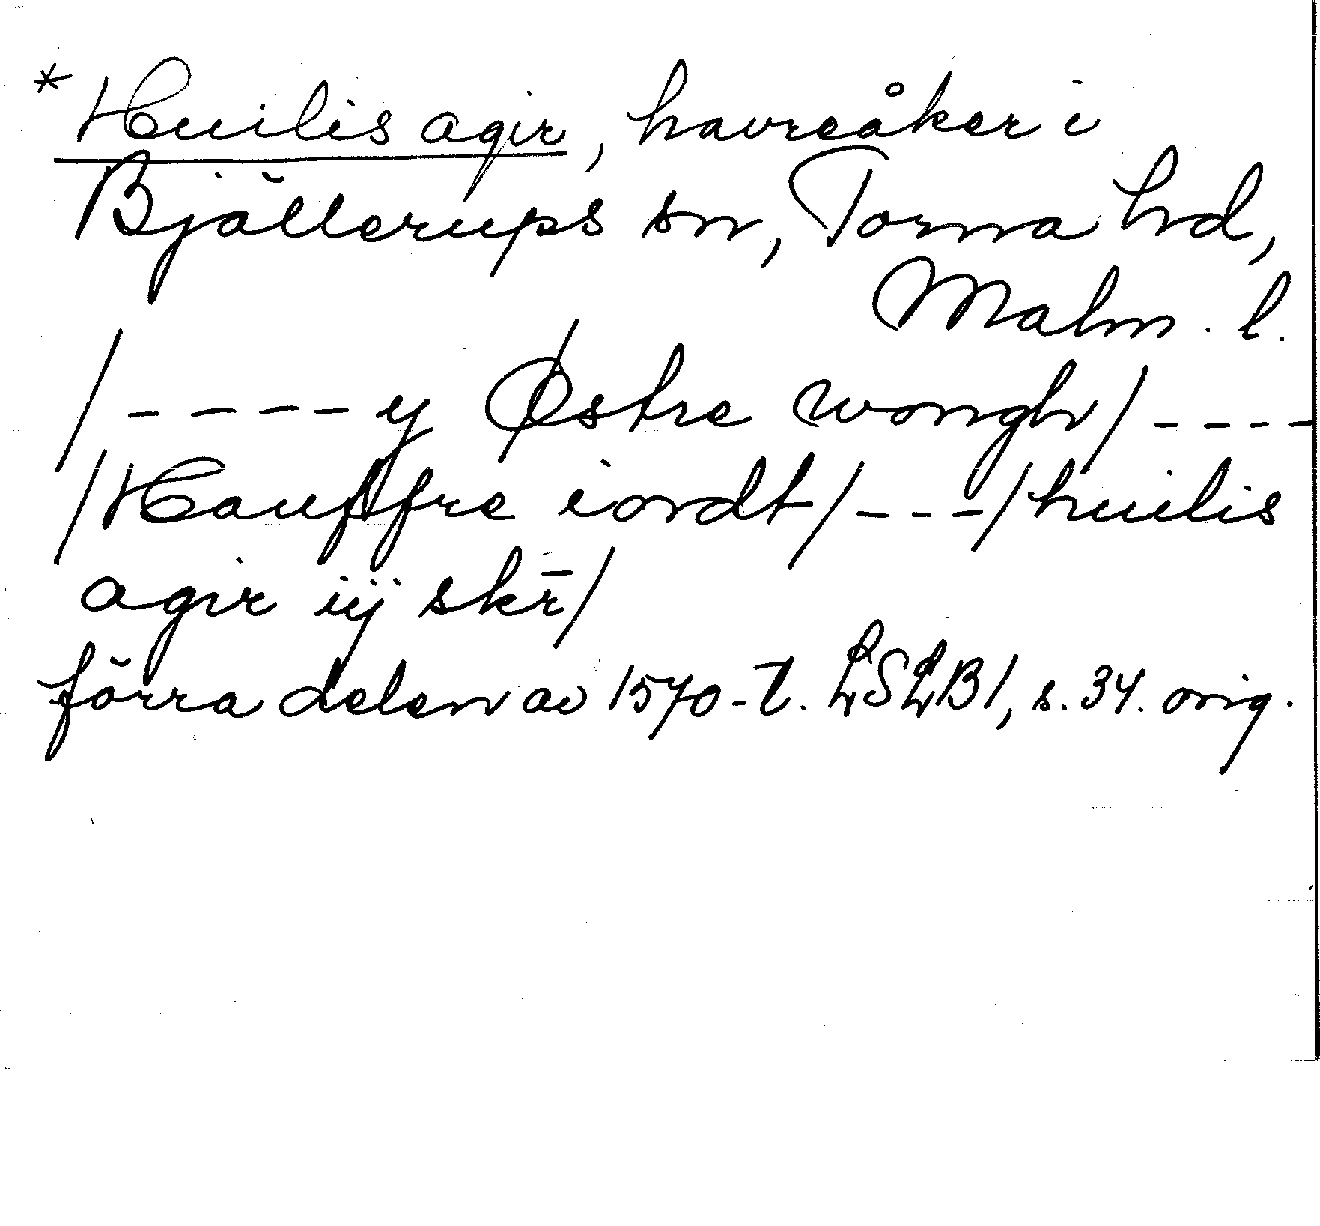 *Huilis agir, havreåker i
Bjällerups sn, Torna hd,
Malm. l.
/----y Østre wongh/----
/Hauffre iordt/---/huilis
agir iij skr̄/
förra delen av 1570-t. LSLB1, s. 34. orig.